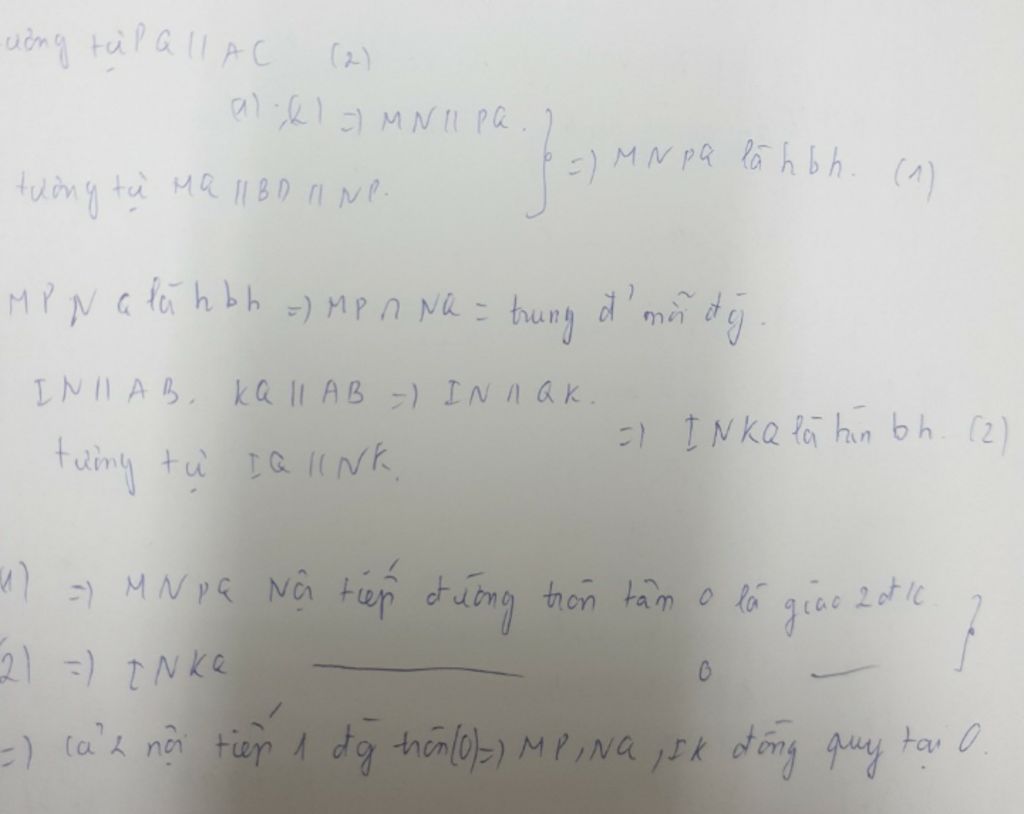 ương tự PQ || AC (2)
(1), (2) => MN || PQ.
tương tự MQ || BD || NP.
} => MNPQ là hbh. (1)
MPNQ là hbh => MP ∩ NQ = trung đ' mỗi đg.
IN || AB. KQ || AB => IN || QK.
tương tự IQ || NK.
=> INKQ là hìn bh. (2)
1) => MNPQ Nội tiếp đường tròn tâm O là giao 2 đ/c }
2) => INKQ ——— O —
=> Cả 2 nội tiếp 1 đg tròn (O) => MP, NQ, IK đồng quy tại O.